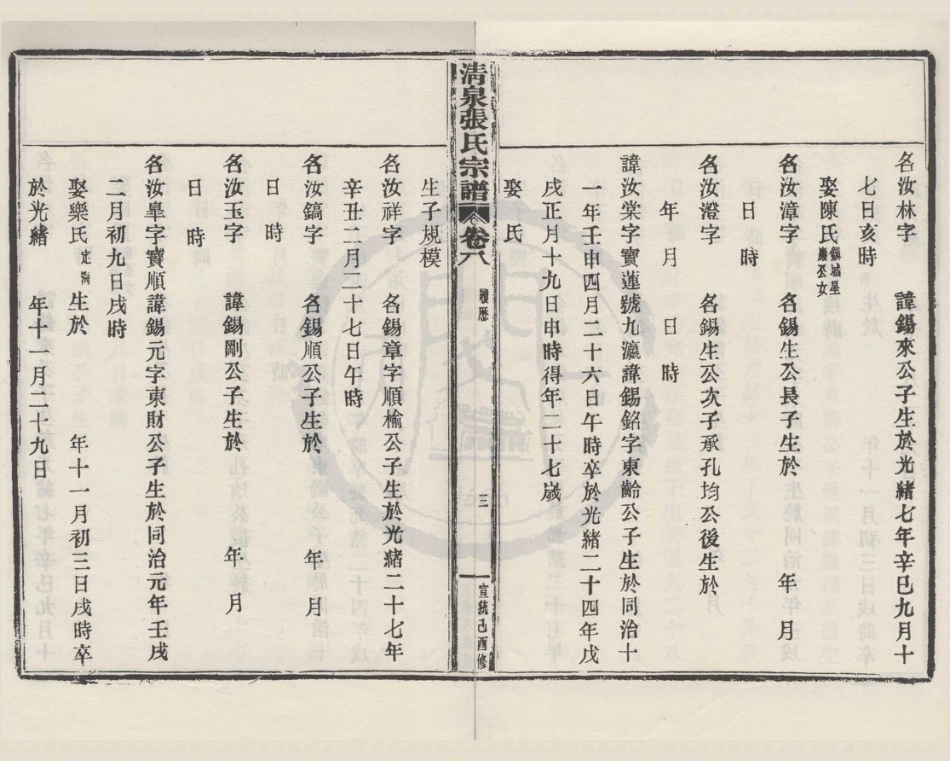 名汝林字　諱錫來公子生於光緒七年辛巳九月十
七日亥時
娶陳氏鎮城星公女
名汝漳字　名錫生公長子生於　年　月
日　時
名汝澄字　名錫生公次子承孔均公後生於
年　月　日　時
諱汝棠字寶蓮號九瀛諱錫銘字東齡公子生於同治十
一年壬申四月二十六日午時卒於光緒二十四年戊
戌正月十九日申時得年二十七歲
娶　氏
清泉張氏宗譜　卷八　履歷　三　宣統己酉修
生子規模
名汝祥字　名錫章字順榆公子生於光緒二十七年
辛丑二月二十七日午時
名汝鎬字　名錫順公子生於　年　月
日　時
名汝玉字　諱錫剛公子生於　年　月
日　時
名汝臯字寶順諱錫元字東財公子生於同治元年壬戌
二月初九日戌時
娶樂氏　生於　年十一月初三日戌時卒
於光緒　年十一月二十九日